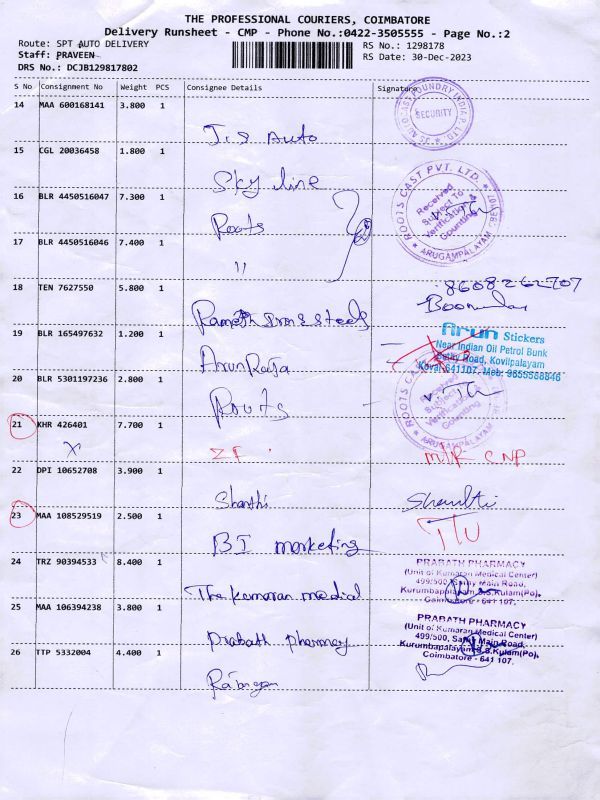 THE PROFESSIONAL COURIERS, COIMBATORE
Delivery Runsheet - CMP - Phone No.:0422-3505555 - Page No.:2
Route: SPT AUTO DELIVERY
RS No.: 1298178
Staff: PRAVEEN
RS Date: 30-Dec-2023
DRS No.: DCJB129817802
S No Consignment No Weight PCS Consignee Details Signature
14 MAA 600168141 3.800 1
J.S Auto
SECURITY
15 CGL 20036458 1.800 1
Sky line
16 BLR 4450516047 7.300 1
Roots
ROOTS CAST PVT. LTD.
Received
Subject To
Verification &
Counting
ARUGAMPALAYAM
17 BLR 4450516046 7.400 1
"
18 TEN 7627550 5.800 1
8608262707
19 BLR 165497632 1.200 1
Arun
Arun Stickers
Near Indian Oil Petrol Bunk
Road, Kovilpalayam
Kovai 641107. Mob: 9855588846
20 BLR 5301197236 2.800 1
Roots
Received
Subject To
Verification &
Counting
ARUGAMPALAYAM
21 KHR 426401 7.700 1
x
ZF
CNP
22 DPI 10652708 3.900 1
Shanthi
23 MAA 108529519 2.500 1
BI marketing
24 TRZ 90394533 8.400 1
The Kumaran medical
PRABATH PHARMACY
(Unit of Kumaran Medical Center)
499/500, Sathy Main Road,
Kurumbapalayam S.S.Kulam(Po),
Coimbatore - 641 107.
25 MAA 106394238 3.800 1
Prabath pharmacy
PRABATH PHARMACY
(Unit of Kumaran Medical Center)
499/500, Sathy Main Road,
Kurumbapalayam S.S.Kulam(Po),
Coimbatore - 641 107.
26 TTP 5332004 4.400 1